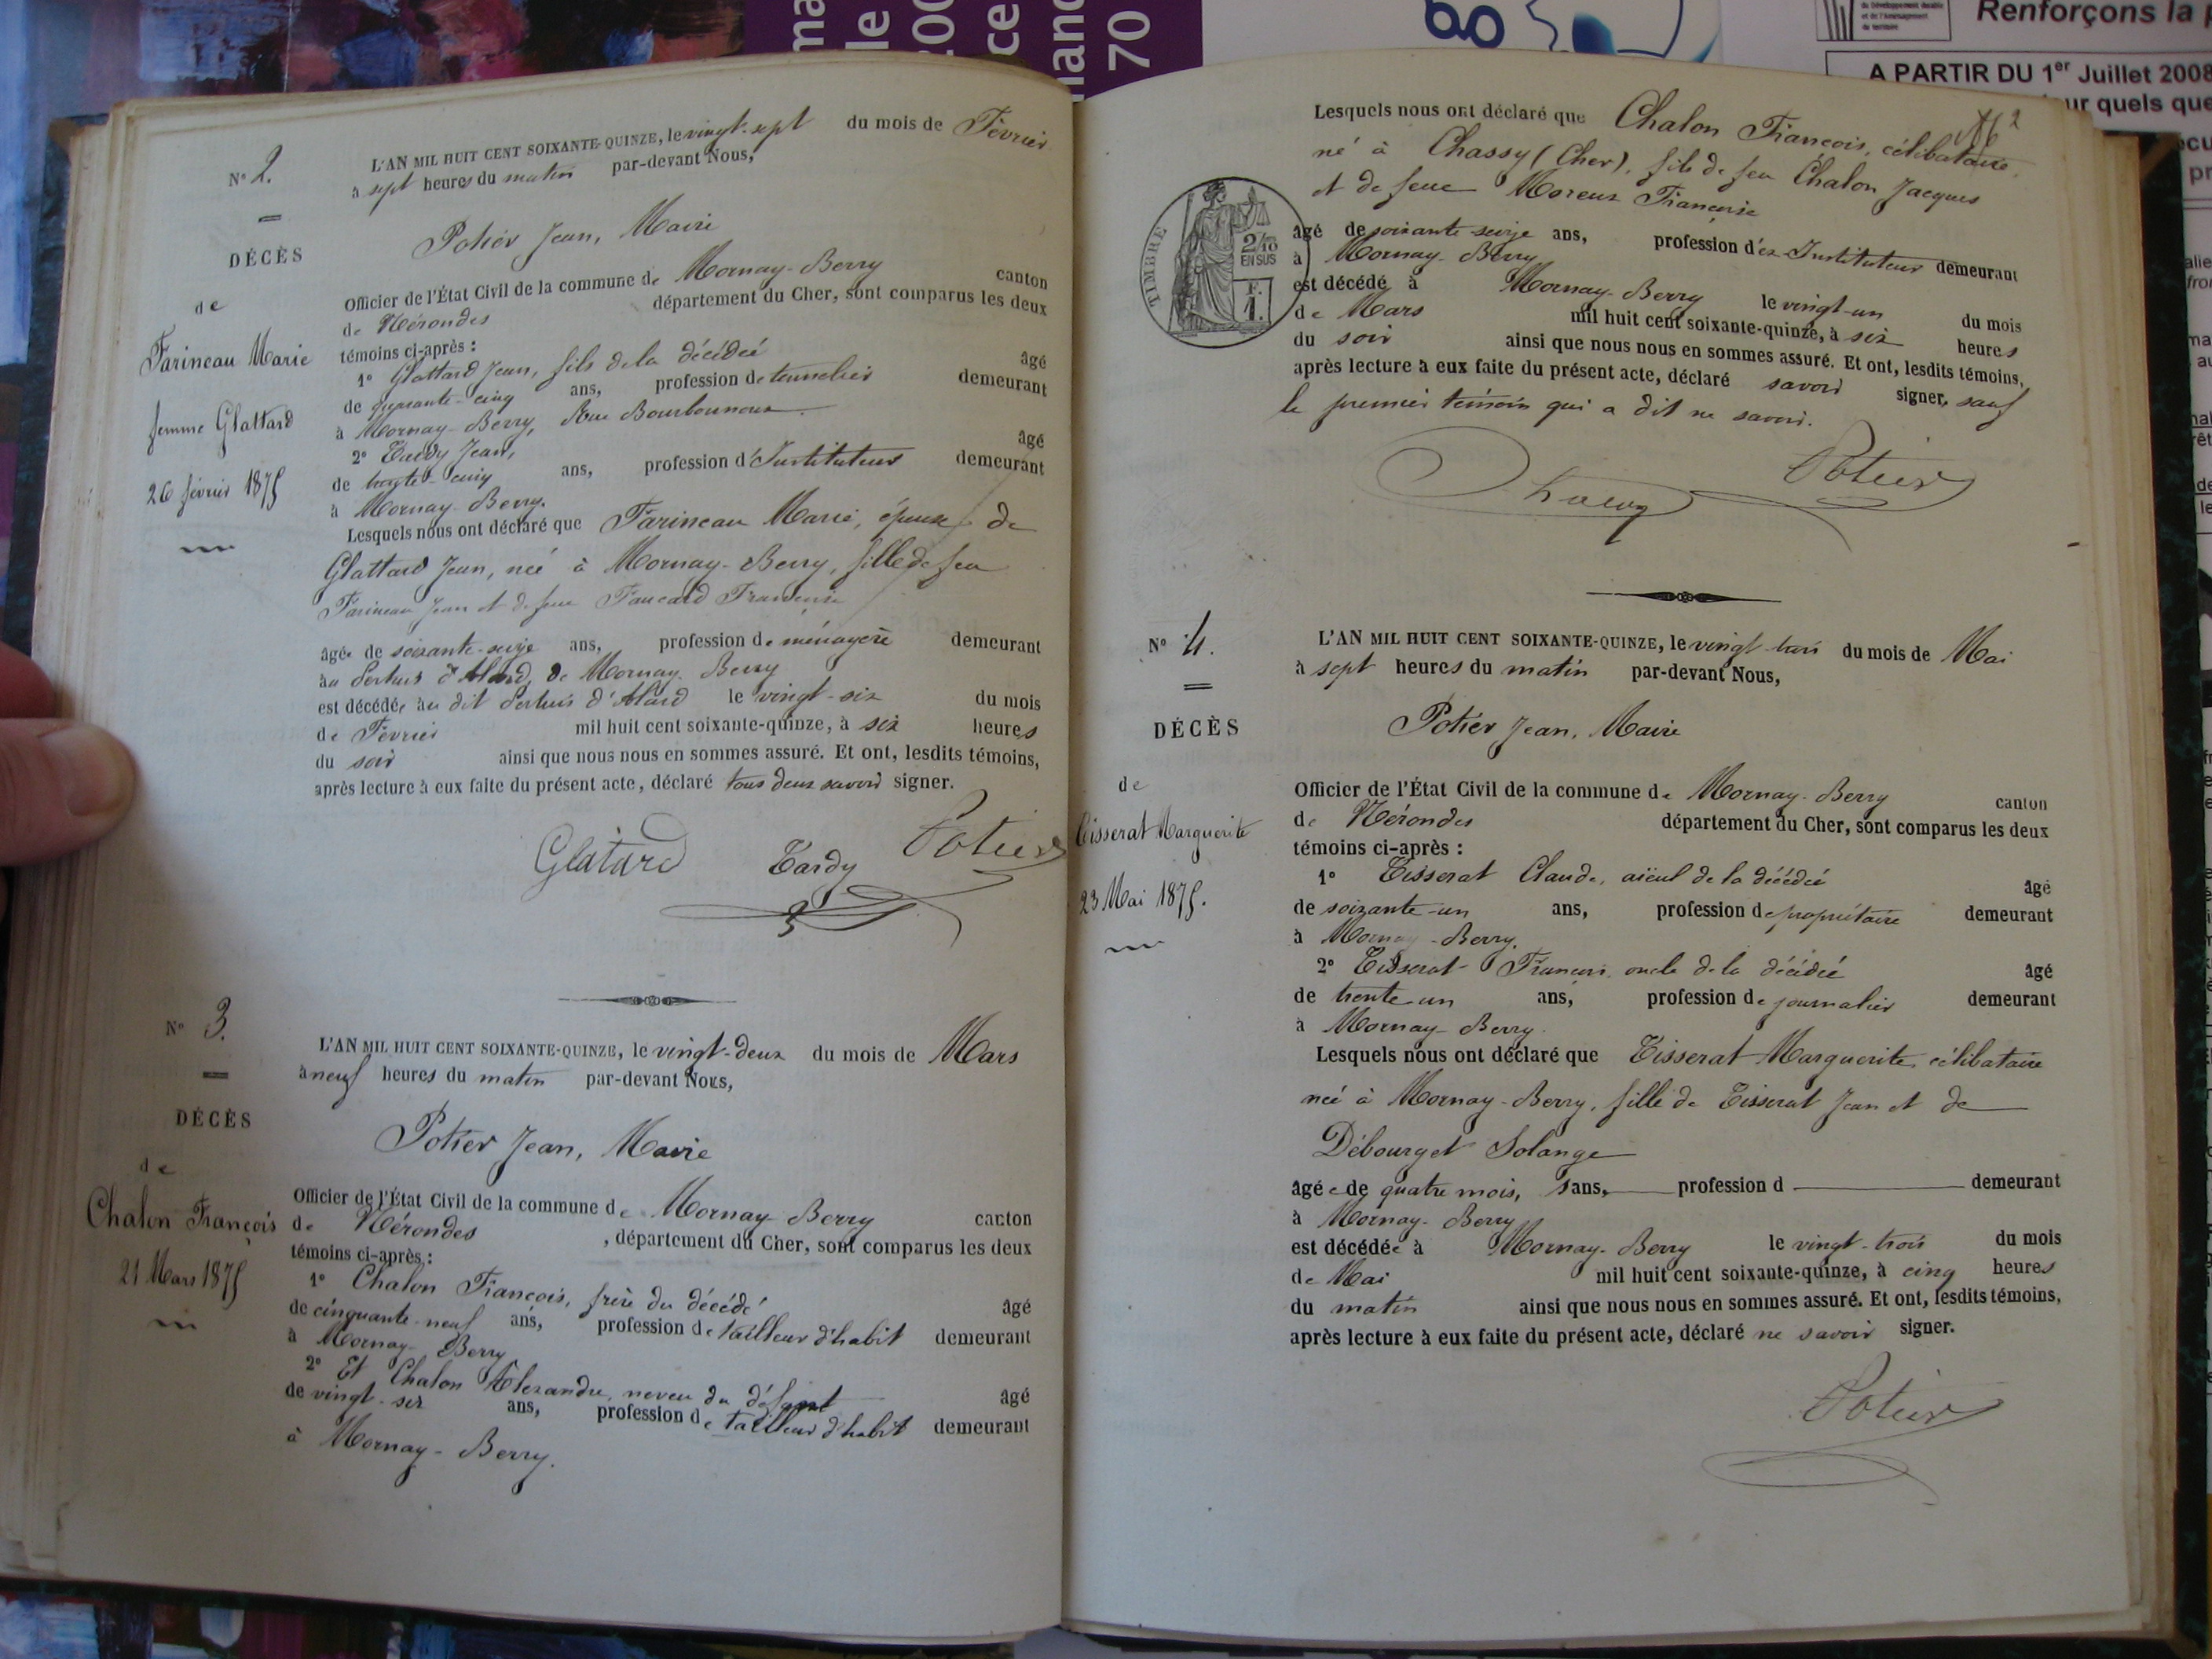 Renforçons la
du Développement durable
et de l'Aménagement
du territoire
A PARTIR DU 1er Juillet 2008
ur quels que
70
N° 2.
DÉCÈS
de
Farineau Marie
femme Glattard
26 février 1875
L'AN MIL HUIT CENT SOIXANTE-QUINZE, le vingt-sept du mois de Février
à sept heures du matin par-devant Nous,
Potier Jean, Maire
Officier de l'État Civil de la commune de Mornay-Berry canton
de Nérondes département du Cher, sont comparus les deux
témoins ci-après :
1° Glattard Jean, fils de la décédée âgé
de quarante-cinq ans, profession de tonnelier demeurant
à Mornay-Berry, Rue Bourbonnoux
2° Tardy Jean, âgé
de trente-cinq ans, profession d'Instituteur demeurant
à Mornay-Berry.
Lesquels nous ont déclaré que Farineau Marie, épouse de
Glattard Jean, née à Mornay-Berry, fille de feu
Farineau Jean et de feue Foucard Françoise
âgée de soixante-seize ans, profession de ménagère demeurant
au Pertuis d'Alard, de Mornay-Berry
est décédée au dit Pertuis d'Alard le vingt-six du mois
de Février mil huit cent soixante-quinze, à six heures
du soir ainsi que nous nous en sommes assuré. Et ont, lesdits témoins,
après lecture à eux faite du présent acte, déclaré tous deux savoir signer.
Glatard Tardy Potier
N° 3.
DÉCÈS
de
Chalon François
21 Mars 1875
L'AN MIL HUIT CENT SOIXANTE-QUINZE, le vingt-deux du mois de Mars
à neuf heures du matin par-devant Nous,
Potier Jean, Maire
Officier de l'État Civil de la commune de Mornay-Berry canton
de Nérondes , département du Cher, sont comparus les deux
témoins ci-après :
1° Chalon François, frère du décédé âgé
de cinquante-neuf ans, profession de tailleur d'habit demeurant
à Mornay-Berry
2° Et Chalon Alexandre, neveu du défunt âgé
de vingt-six ans, profession de tailleur d'habit demeurant
à Mornay-Berry.
Lesquels nous ont déclaré que Chalon François, célibataire,
né à Chassy (Cher), fils de feu Chalon Jacques
et de feue Moreux Françoise
âgé de soixante-seize ans, profession d'ex-Instituteur demeurant
à Mornay-Berry
est décédé à Mornay-Berry le vingt-un du mois
de Mars mil huit cent soixante-quinze, à six heures
du soir ainsi que nous nous en sommes assuré. Et ont, lesdits témoins,
après lecture à eux faite du présent acte, déclaré savoir signer, sauf
le premier témoin qui a dit ne savoir.
TIMBRE
2/10
EN SUS
F.
1.
Potier
N° 4.
DÉCÈS
de
Tisserat Marguerite
23 Mai 1875.
L'AN MIL HUIT CENT SOIXANTE-QUINZE, le vingt-trois du mois de Mai
à sept heures du matin par-devant Nous,
Potier Jean, Maire
Officier de l'État Civil de la commune de Mornay-Berry canton
de Nérondes département du Cher, sont comparus les deux
témoins ci-après :
1° Tisserat Claude, aïeul de la décédée âgé
de soixante-un ans, profession de propriétaire demeurant
à Mornay-Berry.
2° Tisserat François, oncle de la décédée âgé
de trente-un ans, profession de journalier demeurant
à Mornay-Berry.
Lesquels nous ont déclaré que Tisserat Marguerite, célibataire
née à Mornay-Berry, fille de Tisserat Jean et de
Débourget Solange
âgée de quatre mois, sans, profession d demeurant
à Mornay-Berry
est décédée à Mornay-Berry le vingt-trois du mois
de Mai mil huit cent soixante-quinze, à cinq heures
du matin ainsi que nous nous en sommes assuré. Et ont, lesdits témoins,
après lecture à eux faite du présent acte, déclaré ne savoir signer.
Potier